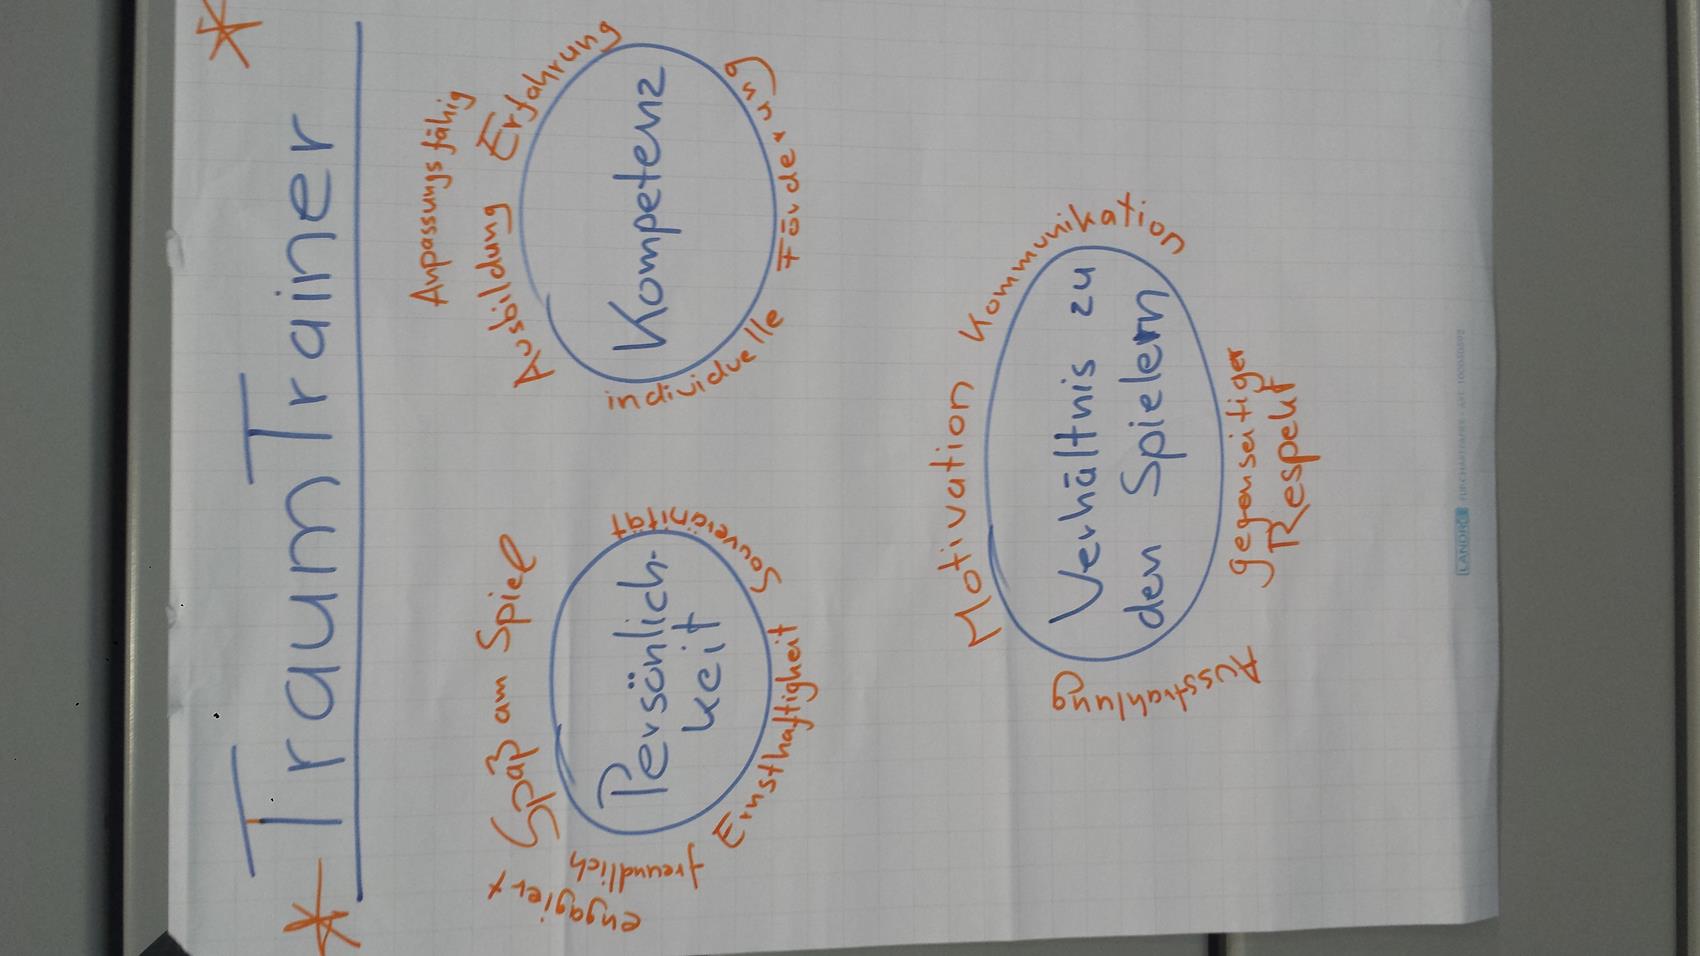 TraumTrainer
Spaß am Spiel
engagiert
freundlich
Persönlich-
keit
Souveränität
Ernsthaftigkeit
Anpassungsfähig
Ausbildung Erfahrung
Kompetenz
individuelle Förderung
Motivation Kommunikation
Verhältnis zu
den Spielern
Ausstrahlung
gegenseitiger
Respekt
LANDRÉ